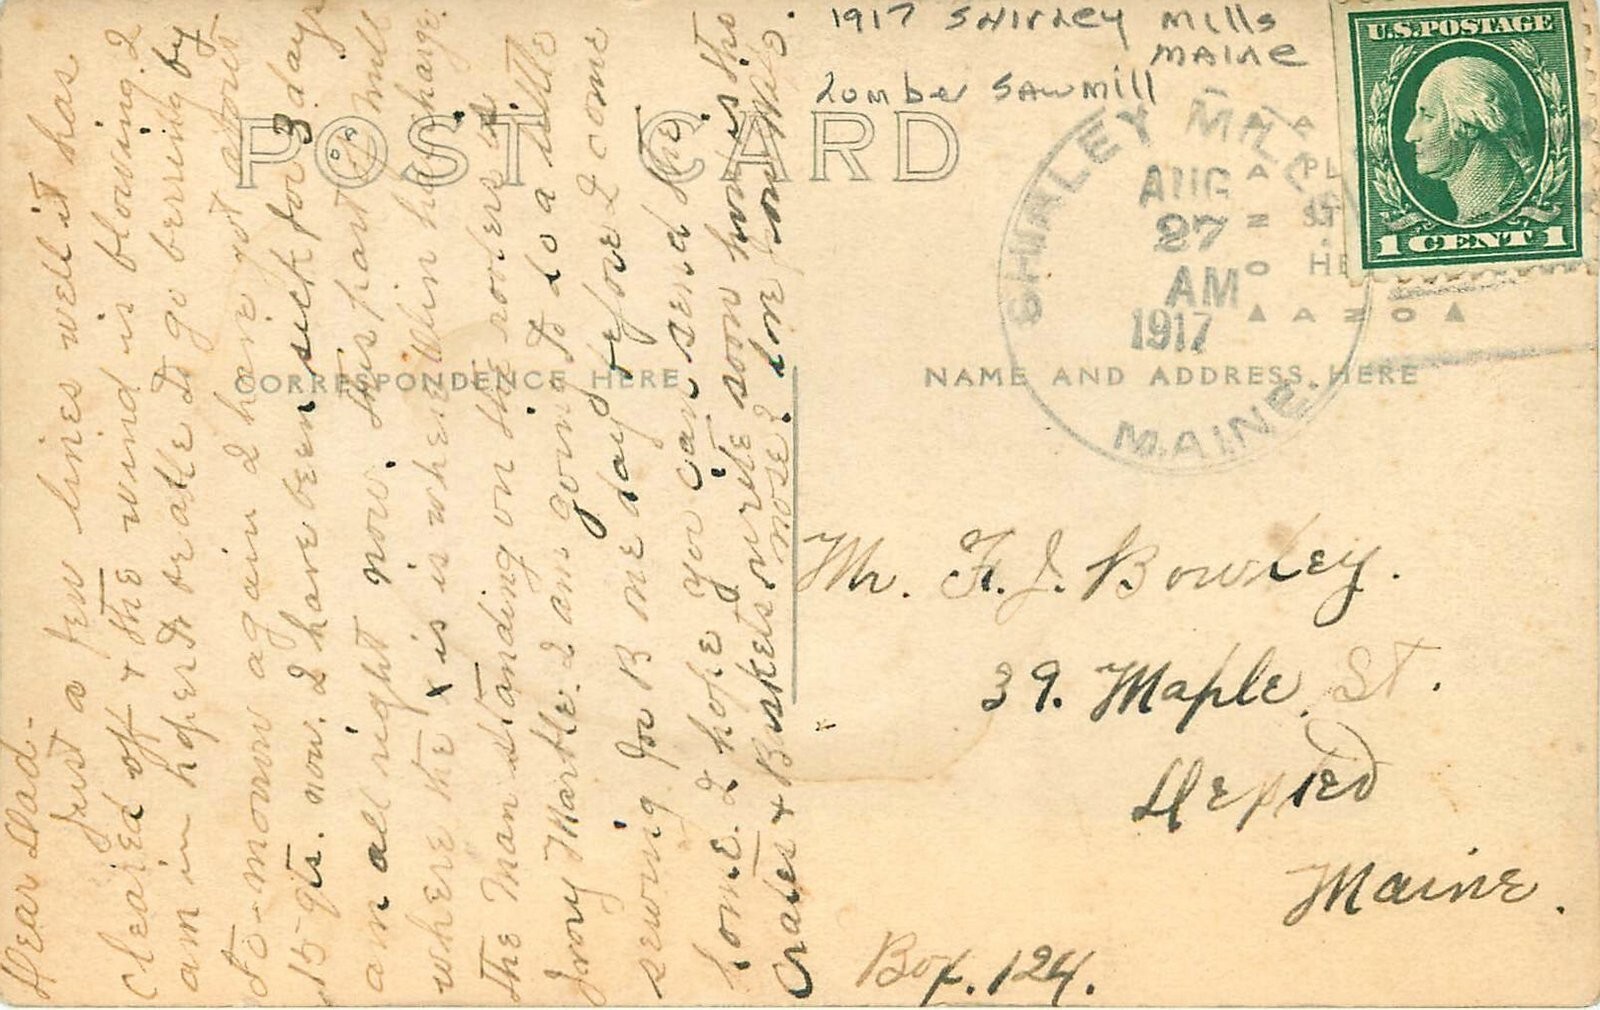 1917 Shirley Mills
Maine
Lumber Sawmill
U.S. POSTAGE
1 CENT 1
POST CARD
SHIRLEY MILLS
AUG
27
AM
1917
MAINE.
CORRESPONDENCE HERE
NAME AND ADDRESS HERE
A A
PL
ST
HE
▲ A Z O ▲
Dear Dad-
Just a few lines well it has
cleared off + the wind is blowing. I
am in hopes to be able to go berrying by
to-morrow again I have got about
15 qts. now. I have been sick for 3 days
am all right now. This part of mill
where the x is is where Alvin has charge.
the man standing on the rollers is
Ivory Marble. I am going to do a little
sewing for B one day before I come
home. I hope you can send the
Crates + Baskets write soon how is the
nose? love from Milo.
Mr. F. J. Bowley.
39. Maple. St.
Maine.
Box. 124.